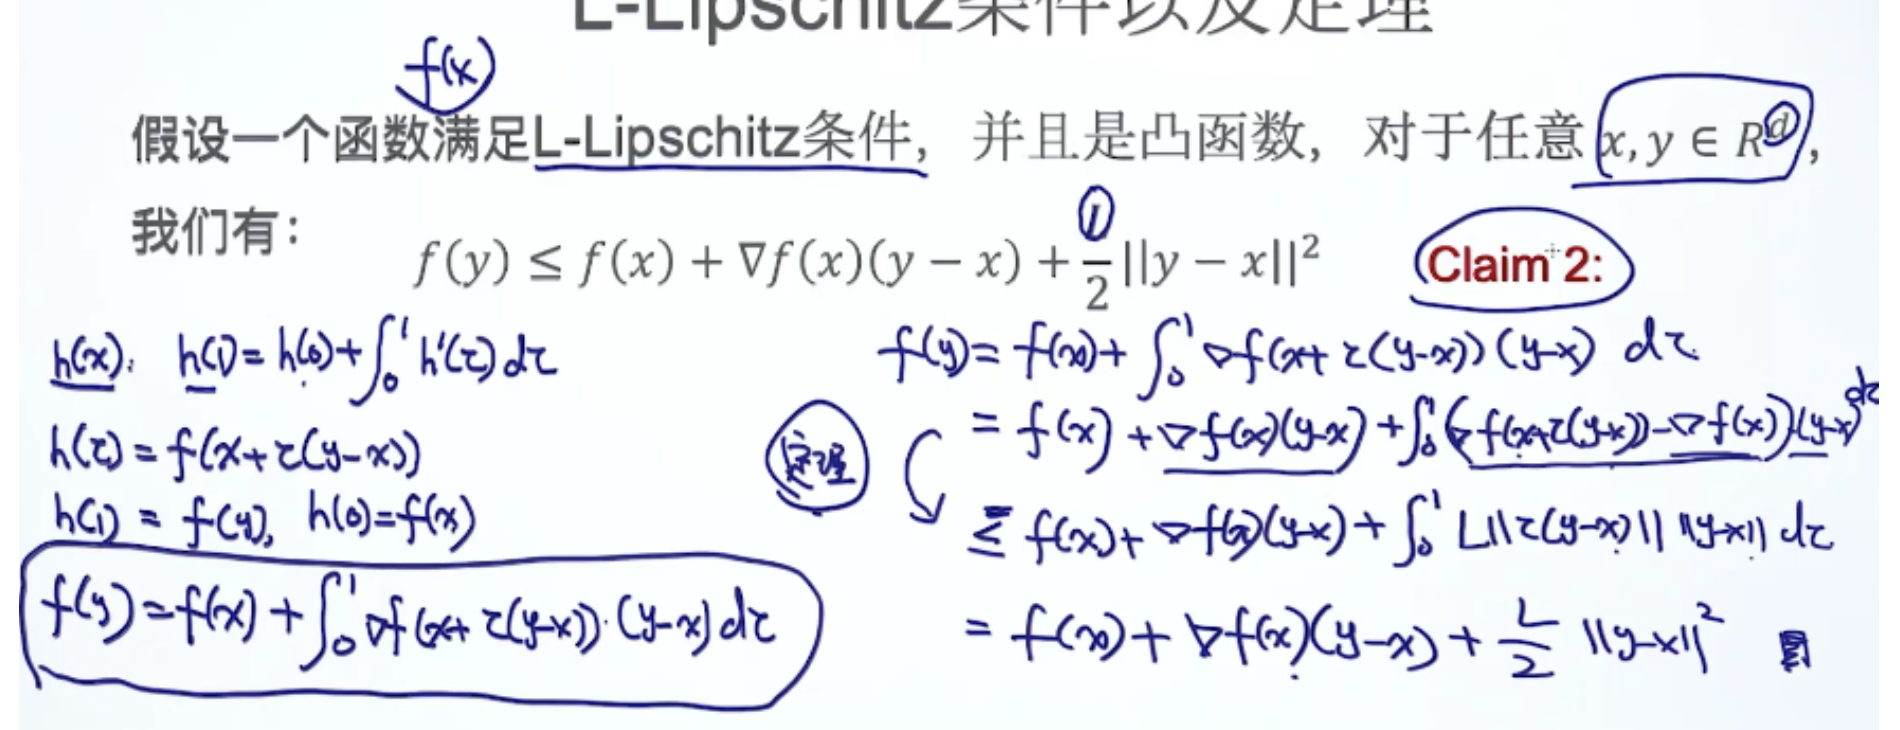 L-Lipschitz条件以及定理
f(x)
假设一个函数满足L-Lipschitz条件，并且是凸函数，对于任意 x, y ∈ R^d，
我们有：
f(y) ≤ f(x) + ∇f(x)(y − x) + L/2 ||y − x||²
Claim 2:
h(x): h(1) = h(0) + ∫₀¹ h'(τ) dτ
h(τ) = f(x+τ(y−x))
h(1) = f(y), h(0)=f(x)
f(y) = f(x) + ∫₀¹ ∇f(x+τ(y−x))·(y−x) dτ
f(y) = f(x) + ∫₀¹ ∇f(x+τ(y−x))(y−x) dτ
= f(x) + ∇f(x)(y−x) + ∫₀¹ (∇f(x+τ(y−x)) − ∇f(x))(y−x) dτ
定理
≤ f(x) + ∇f(x)(y−x) + ∫₀¹ L||τ(y−x)|| ||y−x|| dτ
= f(x) + ∇f(x)(y−x) + L/2 ||y−x||²